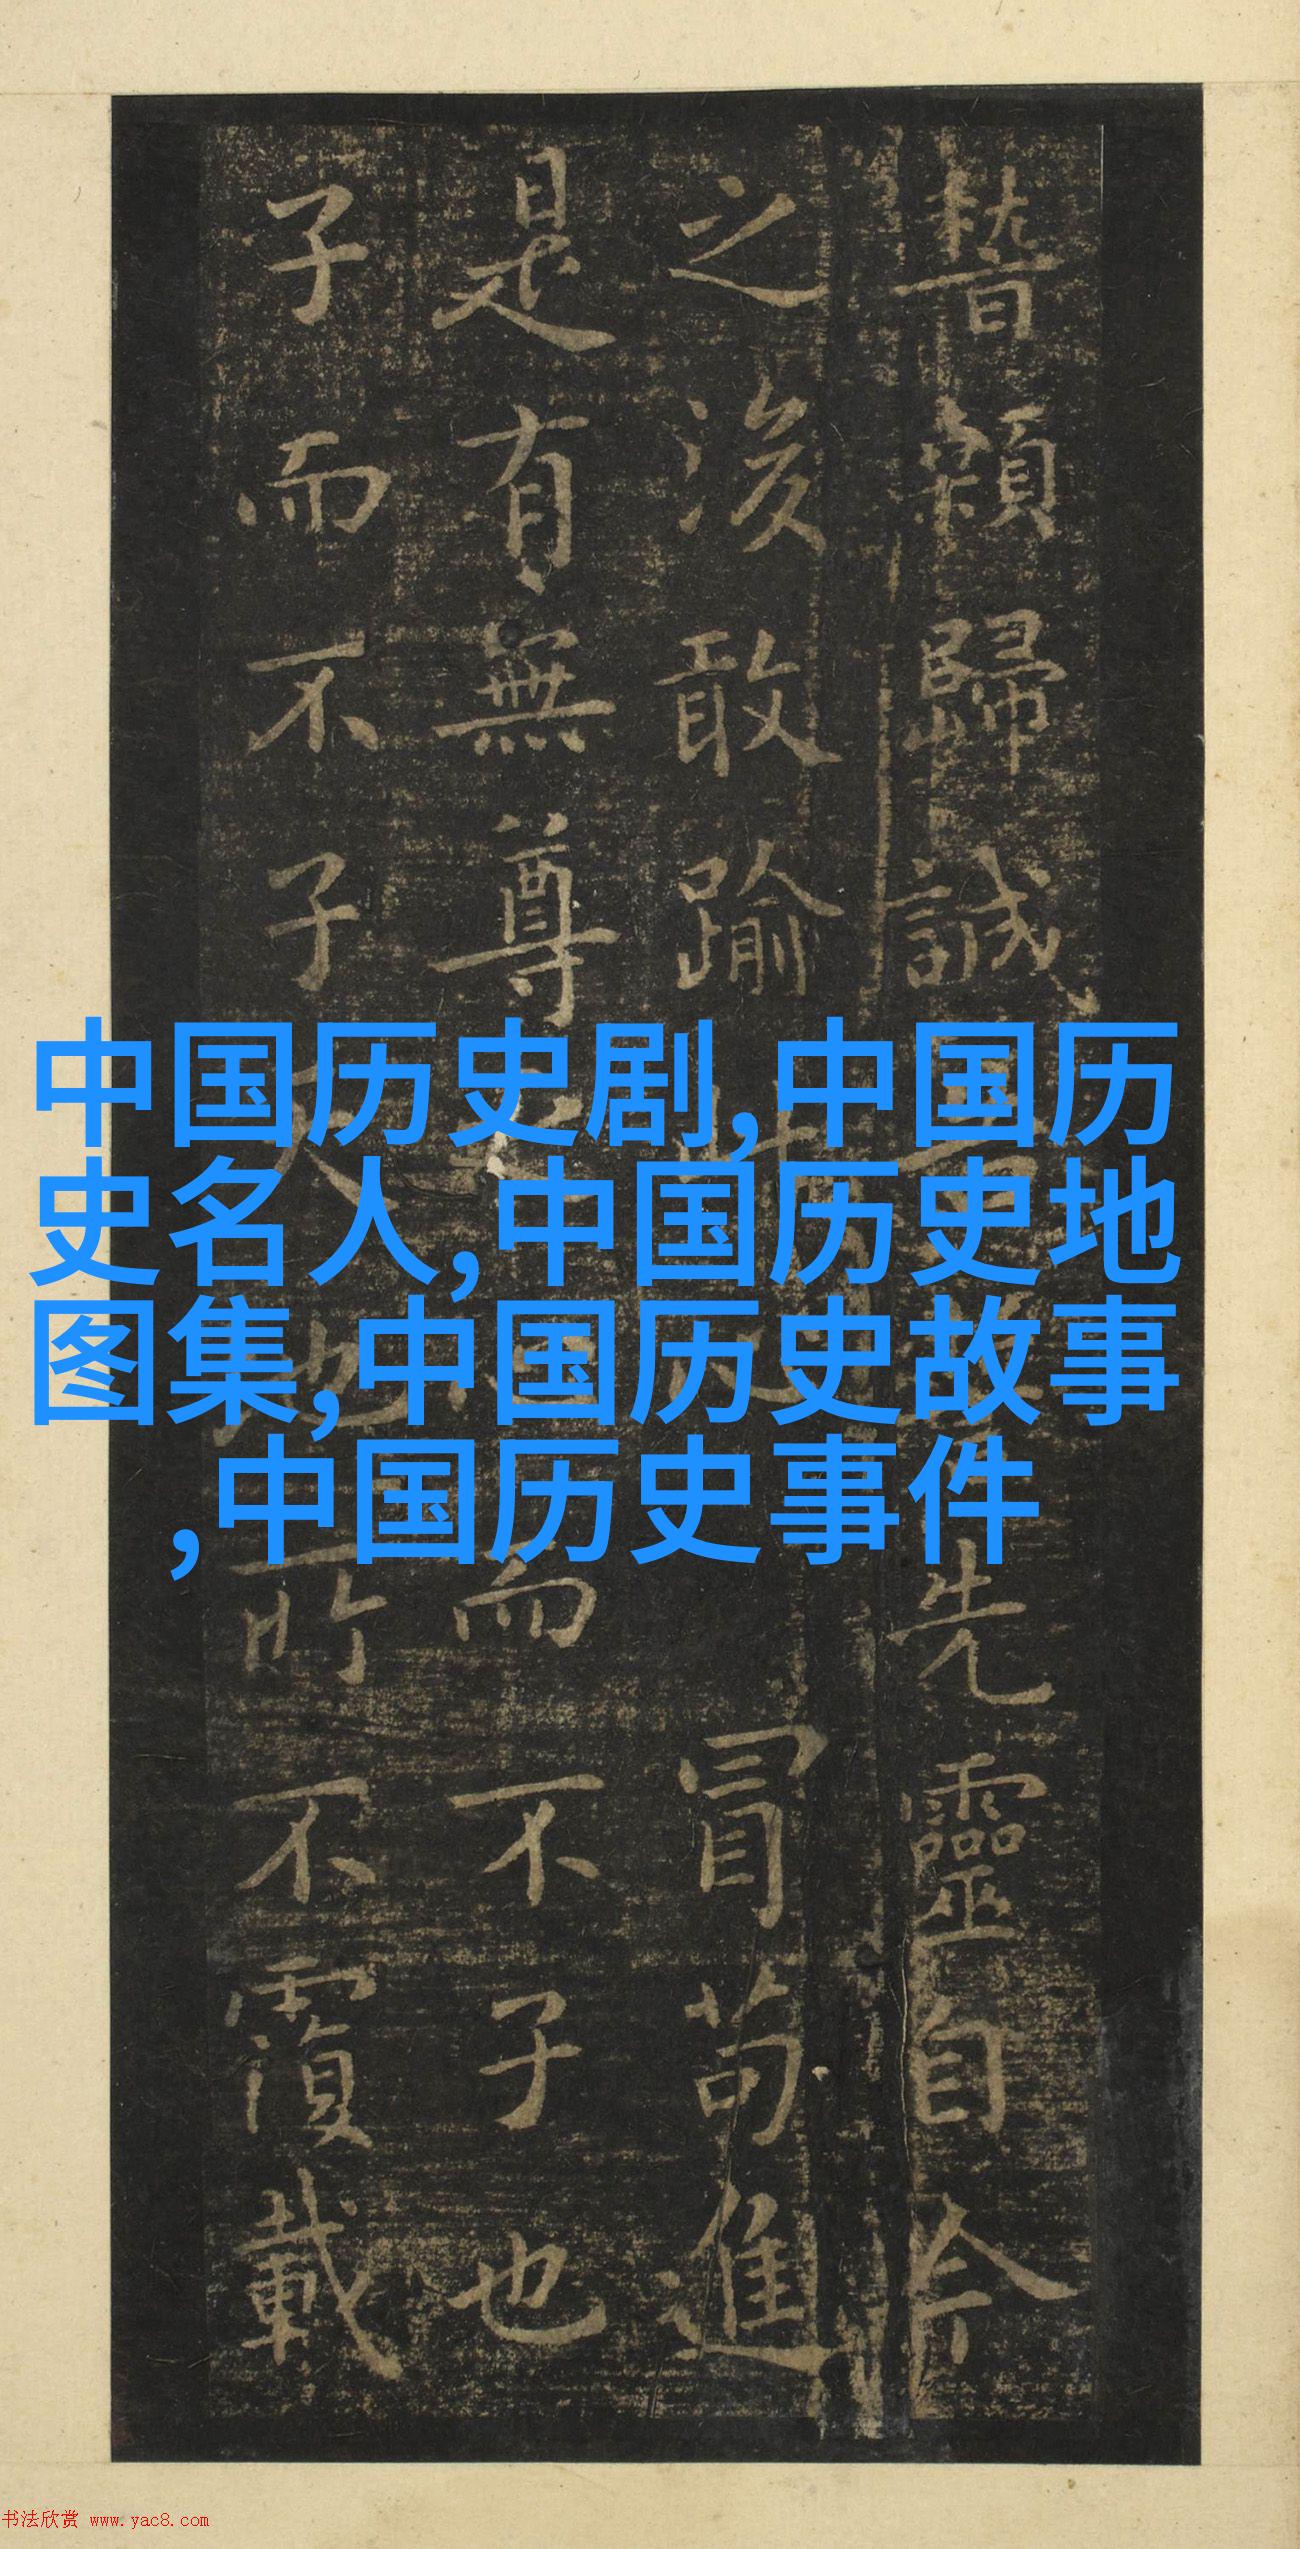 稽顙歸誠先靈自今
之後敢踰冒苟進
是有無尊而不子也
子而不子天地所不覆載
中国历史剧,中国历
史名人,中国历史地
图集,中国历史故事
,中国历史事件
书法欣赏 www.yac8.com